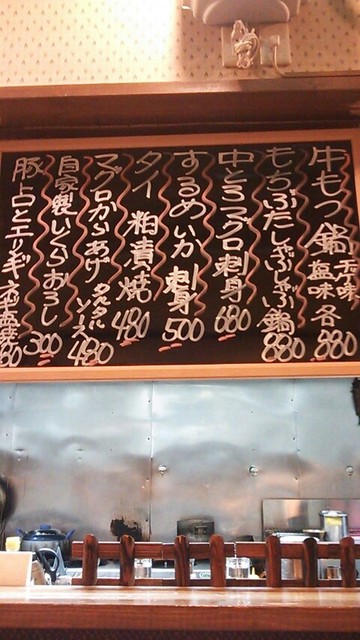 牛もつ鍋 正味 塩味 各 880
もちぶたしゃぶしゃぶ鍋 880
中とろマグロ刺身 680
するめいか刺身 500
タイ粕漬焼 480
マグロからあげ タルタルソース 480
自家製いくらおろし 300
豚とエリンギ